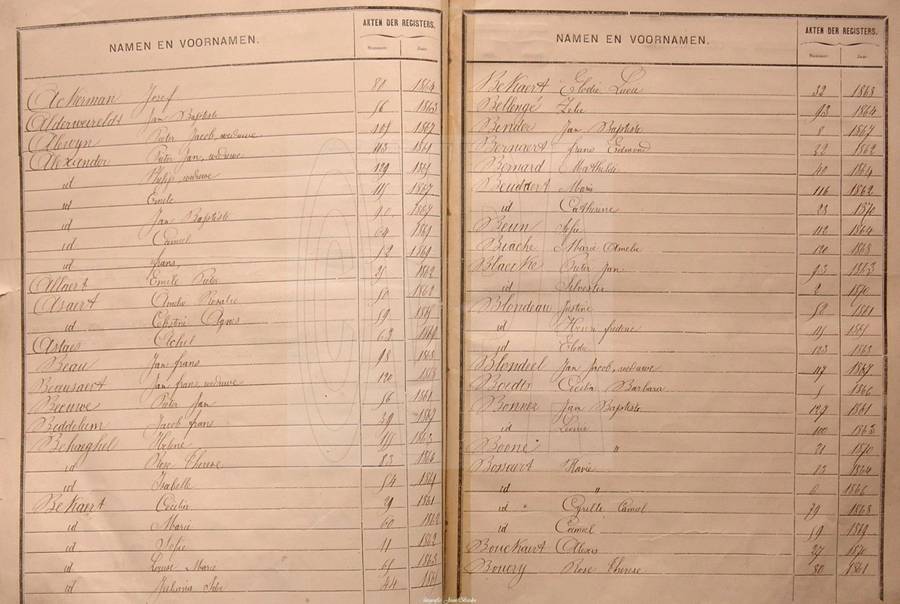 NAMEN EN VOORNAMEN. AKTEN DER REGISTERS.
Nummer. Jaar.
Ackerman Josef 80 1864
Alderweireldt Jan Baptiste 56 1863
Alewyn Pieter Jacob, weduwe 101 1867
Alexander Pieter Jan, weduwe 113 1861
id Philip, weduwe 129
id Emile 1867
id Jan Baptiste
id Camiel 64 1869
id frans 12 1869
Allaert Emile Pieter 21 1862
Asaert Amelie Rosalie 50 1862
id Agnes 59
Astaes 63
Beau Jan frans 18 1868
Beausaert Jan frans, weduwe 120
Beeuwe Pieter Jan 56 1861
Beddeleem Jacob frans 39 1867
Behaeghel Helene
id Rose Therese 83 1864
id Isabelle 54
Bekaert Cecilia 29 1861
id Marie 60 1862
id Sofie 11 1862
id Louise Marie 65 1863
id Juliana 44
NAMEN EN VOORNAMEN. AKTEN DER REGISTERS.
Nummer. Jaar.
Bekaert Elodie Lucia 32 1863
Bellengé Zelie 93 1864
Bender Jan Baptiste 8 1867
Bernaert frans Edmond 22 1862
Bernard Mathilde 40 1864
Beudaert Marie 116 1862
id Catherine 23 1870
Beun Sofie 112 1864
Biache Marie Amelie 120 1863
Blaecke Pieter Jan 93 1863
id Silvester 2 1870
Blondeau Justine 52 1861
id Henri frederic
id Elodie 123 1863
Blondeel Jan Jacob, weduwe 117 1867
Boedt Cecilia Barbara 1866
Bonnez Jan Baptiste 127 1861
id Leonie 100 1863
Boone " 21 1870
Bossaert Marie 13 1864
id " 6 1866
id " Cyrille Camiel 79 1863
id Camiel 59 1869
Bouckaert Alexis 27 1870
Bouery Rose Therese 80 1861